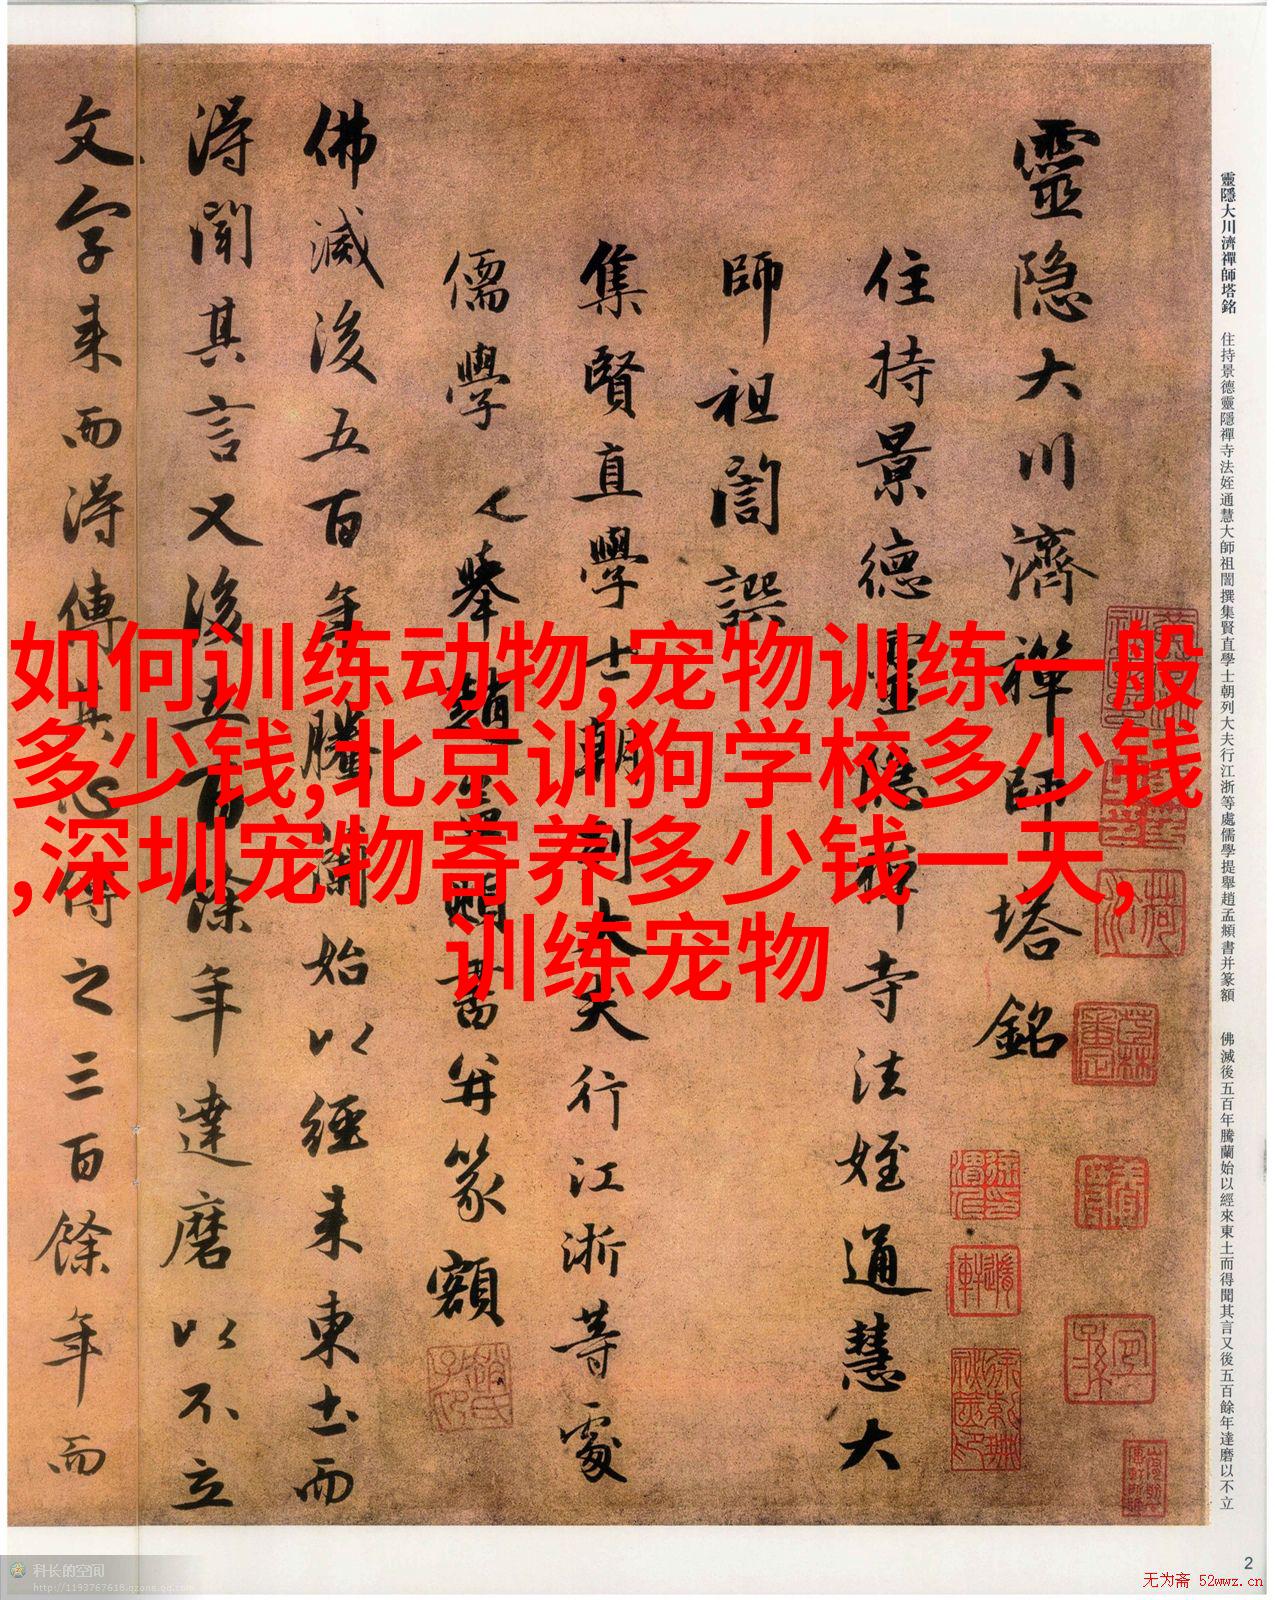 靈隐大川濟禅師塔銘
住持景德靈隱禅寺法姪通慧大
師祖誾譔
集賢直學士朝列大夫行江浙等處
儒學提舉趙孟頫書并篆額
佛滅後五百年騰蘭始以經来東土而
得聞其言又後五百餘年達磨以不立
文字来而得傳其心傳之三百餘年而
靈隱大川濟禪師塔銘 住持景德靈隱禪寺法姪通慧大師祖誾撰集賢直學士朝列大夫行江浙等處儒學提舉趙孟頫書并篆額 佛滅後五百年騰蘭始以經來東土而得聞其言又後五百餘年達磨以不立
如何训练动物,宠物训练一般
多少钱,北京训狗学校多少钱
,深圳宠物寄养多少钱一天,
训练宠物
科长的空间
http://1193767618.qzone.qq.com
2
无为斋 52wwz.cn